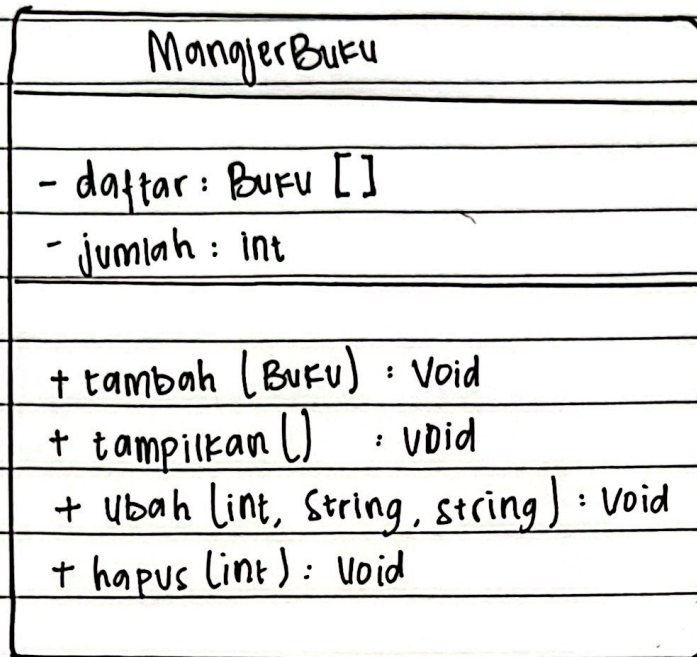 MangjerBuku
- daftar : Buku []
- jumlah : int
+ tambah (Buku) : Void
+ tampilkan () : void
+ Ubah (int, String, string) : Void
+ hapus (int) : Void